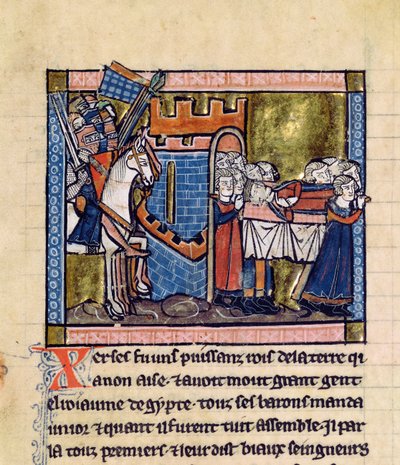 Xerses fu uns puissanz rois de la terre qi
anon aise ⁊ avoit mout grant gent
el roiaume degypte. touz ses barons manda
un ior ⁊ quant il furent tuit assemble. Il par
la touz premiers ⁊ leur dist biaux seingneurs